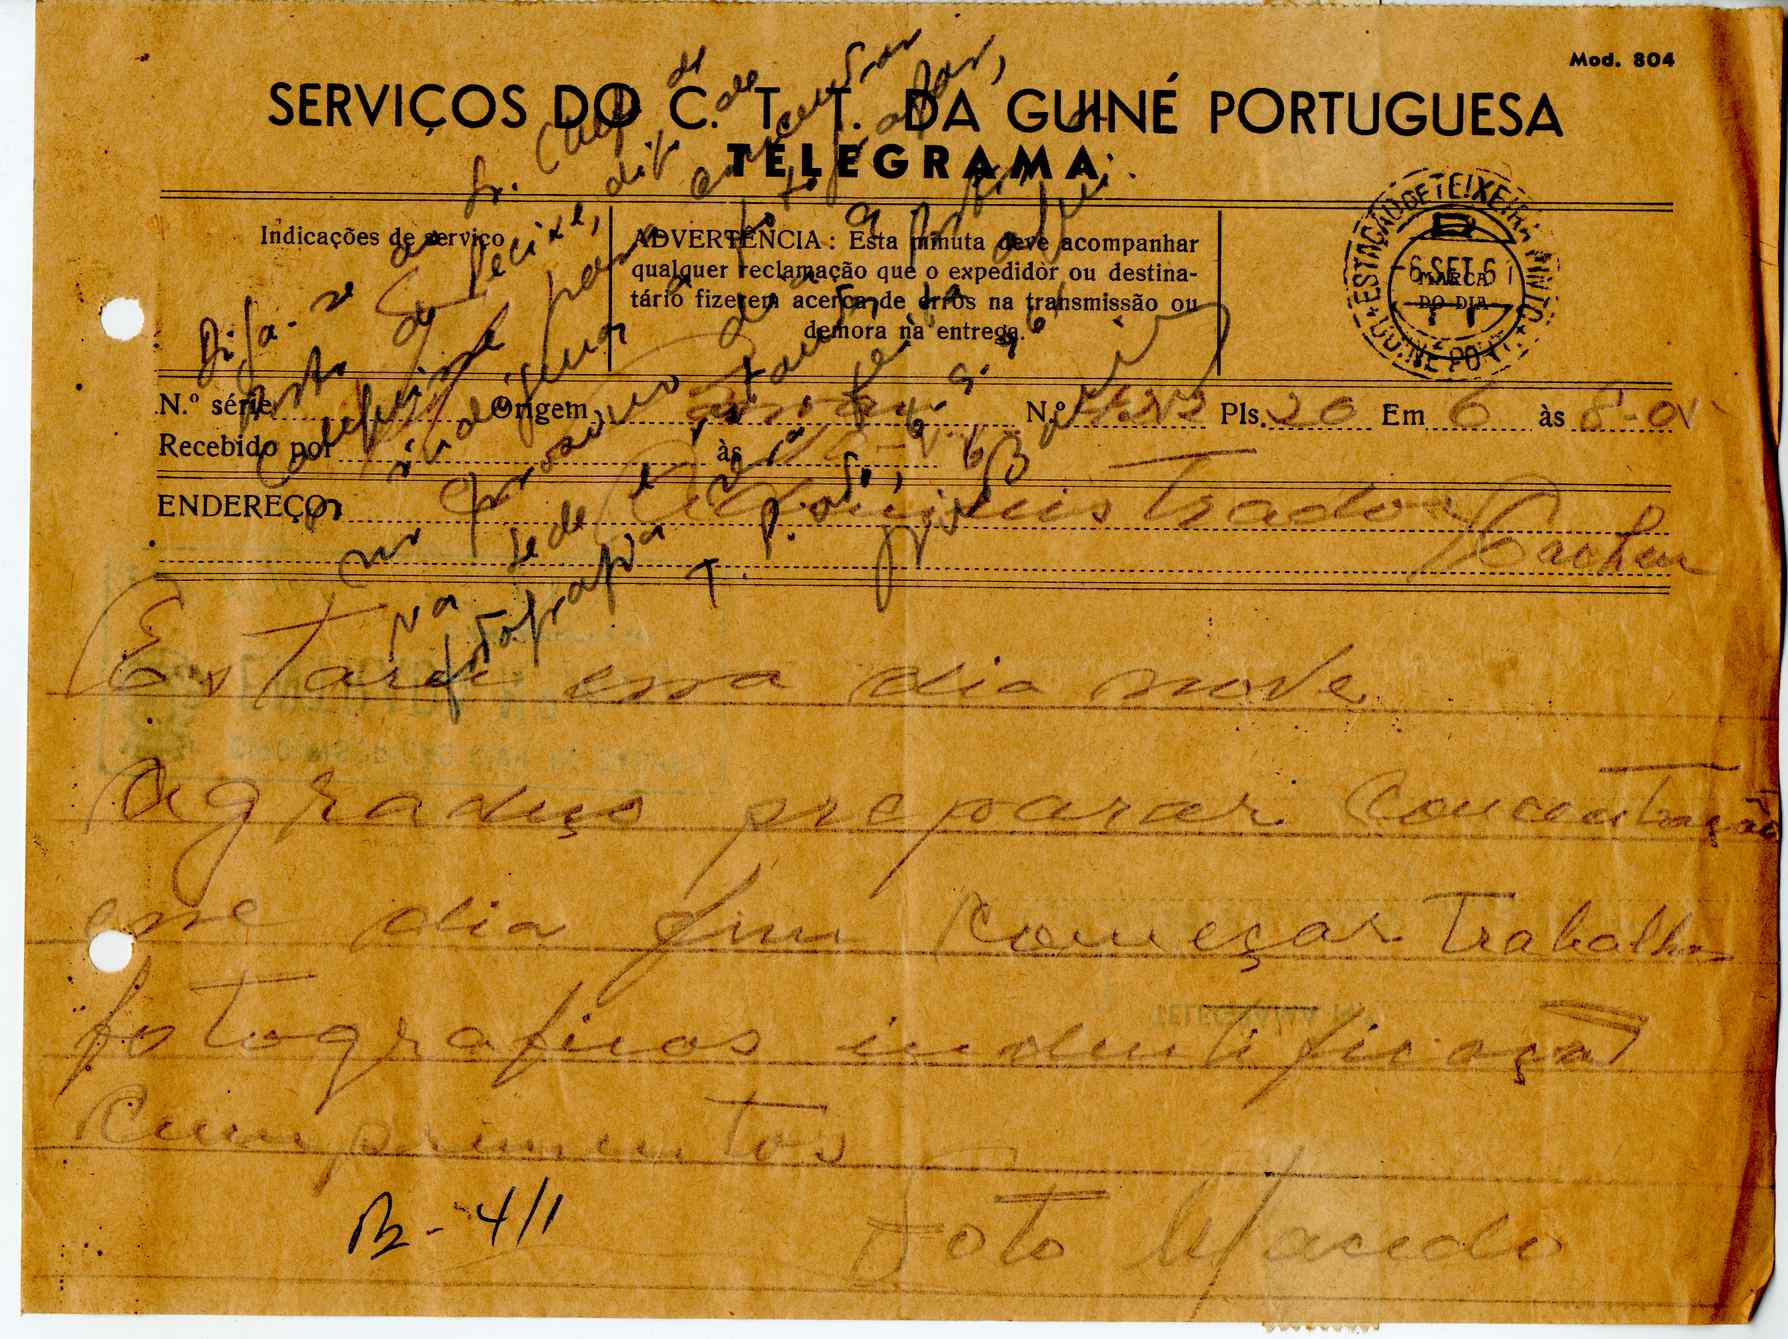 Mod. 804
SERVIÇOS DO C. T. T. DA GUINÉ PORTUGUESA
TELEGRAMA
Indicações de serviço
ADVERTÊNCIA : Esta minuta deve acompanhar
qualquer reclamação que o expedidor ou destina-
tário fizerem acerca de erros na transmissão ou
demora na entrega.
ESTAÇÃO DE TEIXEIRA PINTO
GUINÉ PORT.
-6 SET. 61
MARCA
DO DIA
N.º série Origem Nº 422 Pls. 20 Em 6 às 8-01
Recebido por às
ENDEREÇO: Administrador
Cacheu
Estarei essa dia nove
Agradeço preparar concentração
esse dia fim começar trabalhos
fotograficos indentificação
Cumprimentos
Foto Macedo
B-4/1
Diga-se ao Sr. Chefe do
Posto de
indigena para concentrar
no proximo dia 9 a
na sede
fotografia
T. Pinto, 6. 9. 61